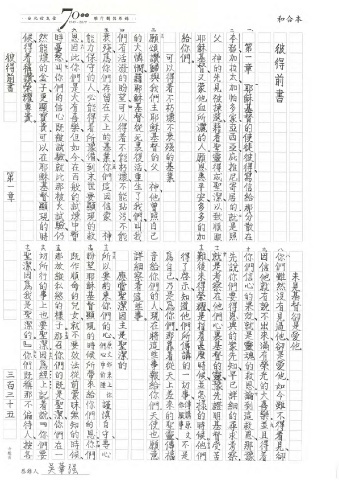 和合本
彼得前書
第一章 耶穌基督的使徒彼得寫信給那分散在
本都加拉太加帕多家亞西亞庇推尼寄居的就是照
父 神的先見被揀選藉着聖靈得成聖潔以致順服
耶穌基督又蒙他血所灑的人願恩惠平安多多的加
給你們
可以得着不朽壞不衰殘的基業
願頌讚歸與我們主耶穌基督的父 神他曾照自己
的大憐憫藉耶穌基督從死裏復活重生了我們叫我
們有活潑的盼望可以得着不能朽壞不能玷污不能
衰殘為你們存留在天上的基業你們這因信蒙 神
能力保守的人必能得着所預備到末世要顯現的救
恩因此你們是大有喜樂但如今在百般的試煉中暫
時憂愁叫你們的信心既被試驗就比那被火試驗仍
然能壞的金子更顯寶貴可以在耶穌基督顯現的時
候得着稱讚榮耀尊貴
未見基督的是愛他
你們雖然沒有見過他卻是愛他如今雖不得看見卻
因信他就有說不出來滿有榮光的大喜樂並且得着
你們信心的果效就是靈魂的救恩論到這救恩那預
先說你們要得恩典的眾先知早已詳細的尋求考察
就是考察在他們心裏基督的靈預先證明基督受苦
難後來得榮耀是指着甚麼時候並怎樣的時候他們
得了啟示知道他們所傳講的一切事不是
為自己乃是為你們那靠着從天上差來的聖靈傳福
音給你們的人現在將這些事報給你們天使也願意
詳細察看這些事
應當聖潔因主是聖潔的
所以要約束你們的心謹慎自守專心
盼望耶穌基督顯現的時候所帶來給你們的恩你們
既作順命的兒女就不要效法從前蒙昧無知的時候
那放縱私慾的樣子那召你們的既是聖潔你們在一
切所行的事上也要聖潔因為經上記着說你們要
聖潔因為我是聖潔的你們既稱那不偏待人按各
彼得前書
第一章
三百三十五
70